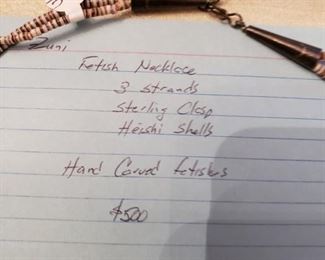 Zuni
Fetish Necklace
3 strands
Sterling Clasp
Heishi Shells
Hand Carved fetishes
$500